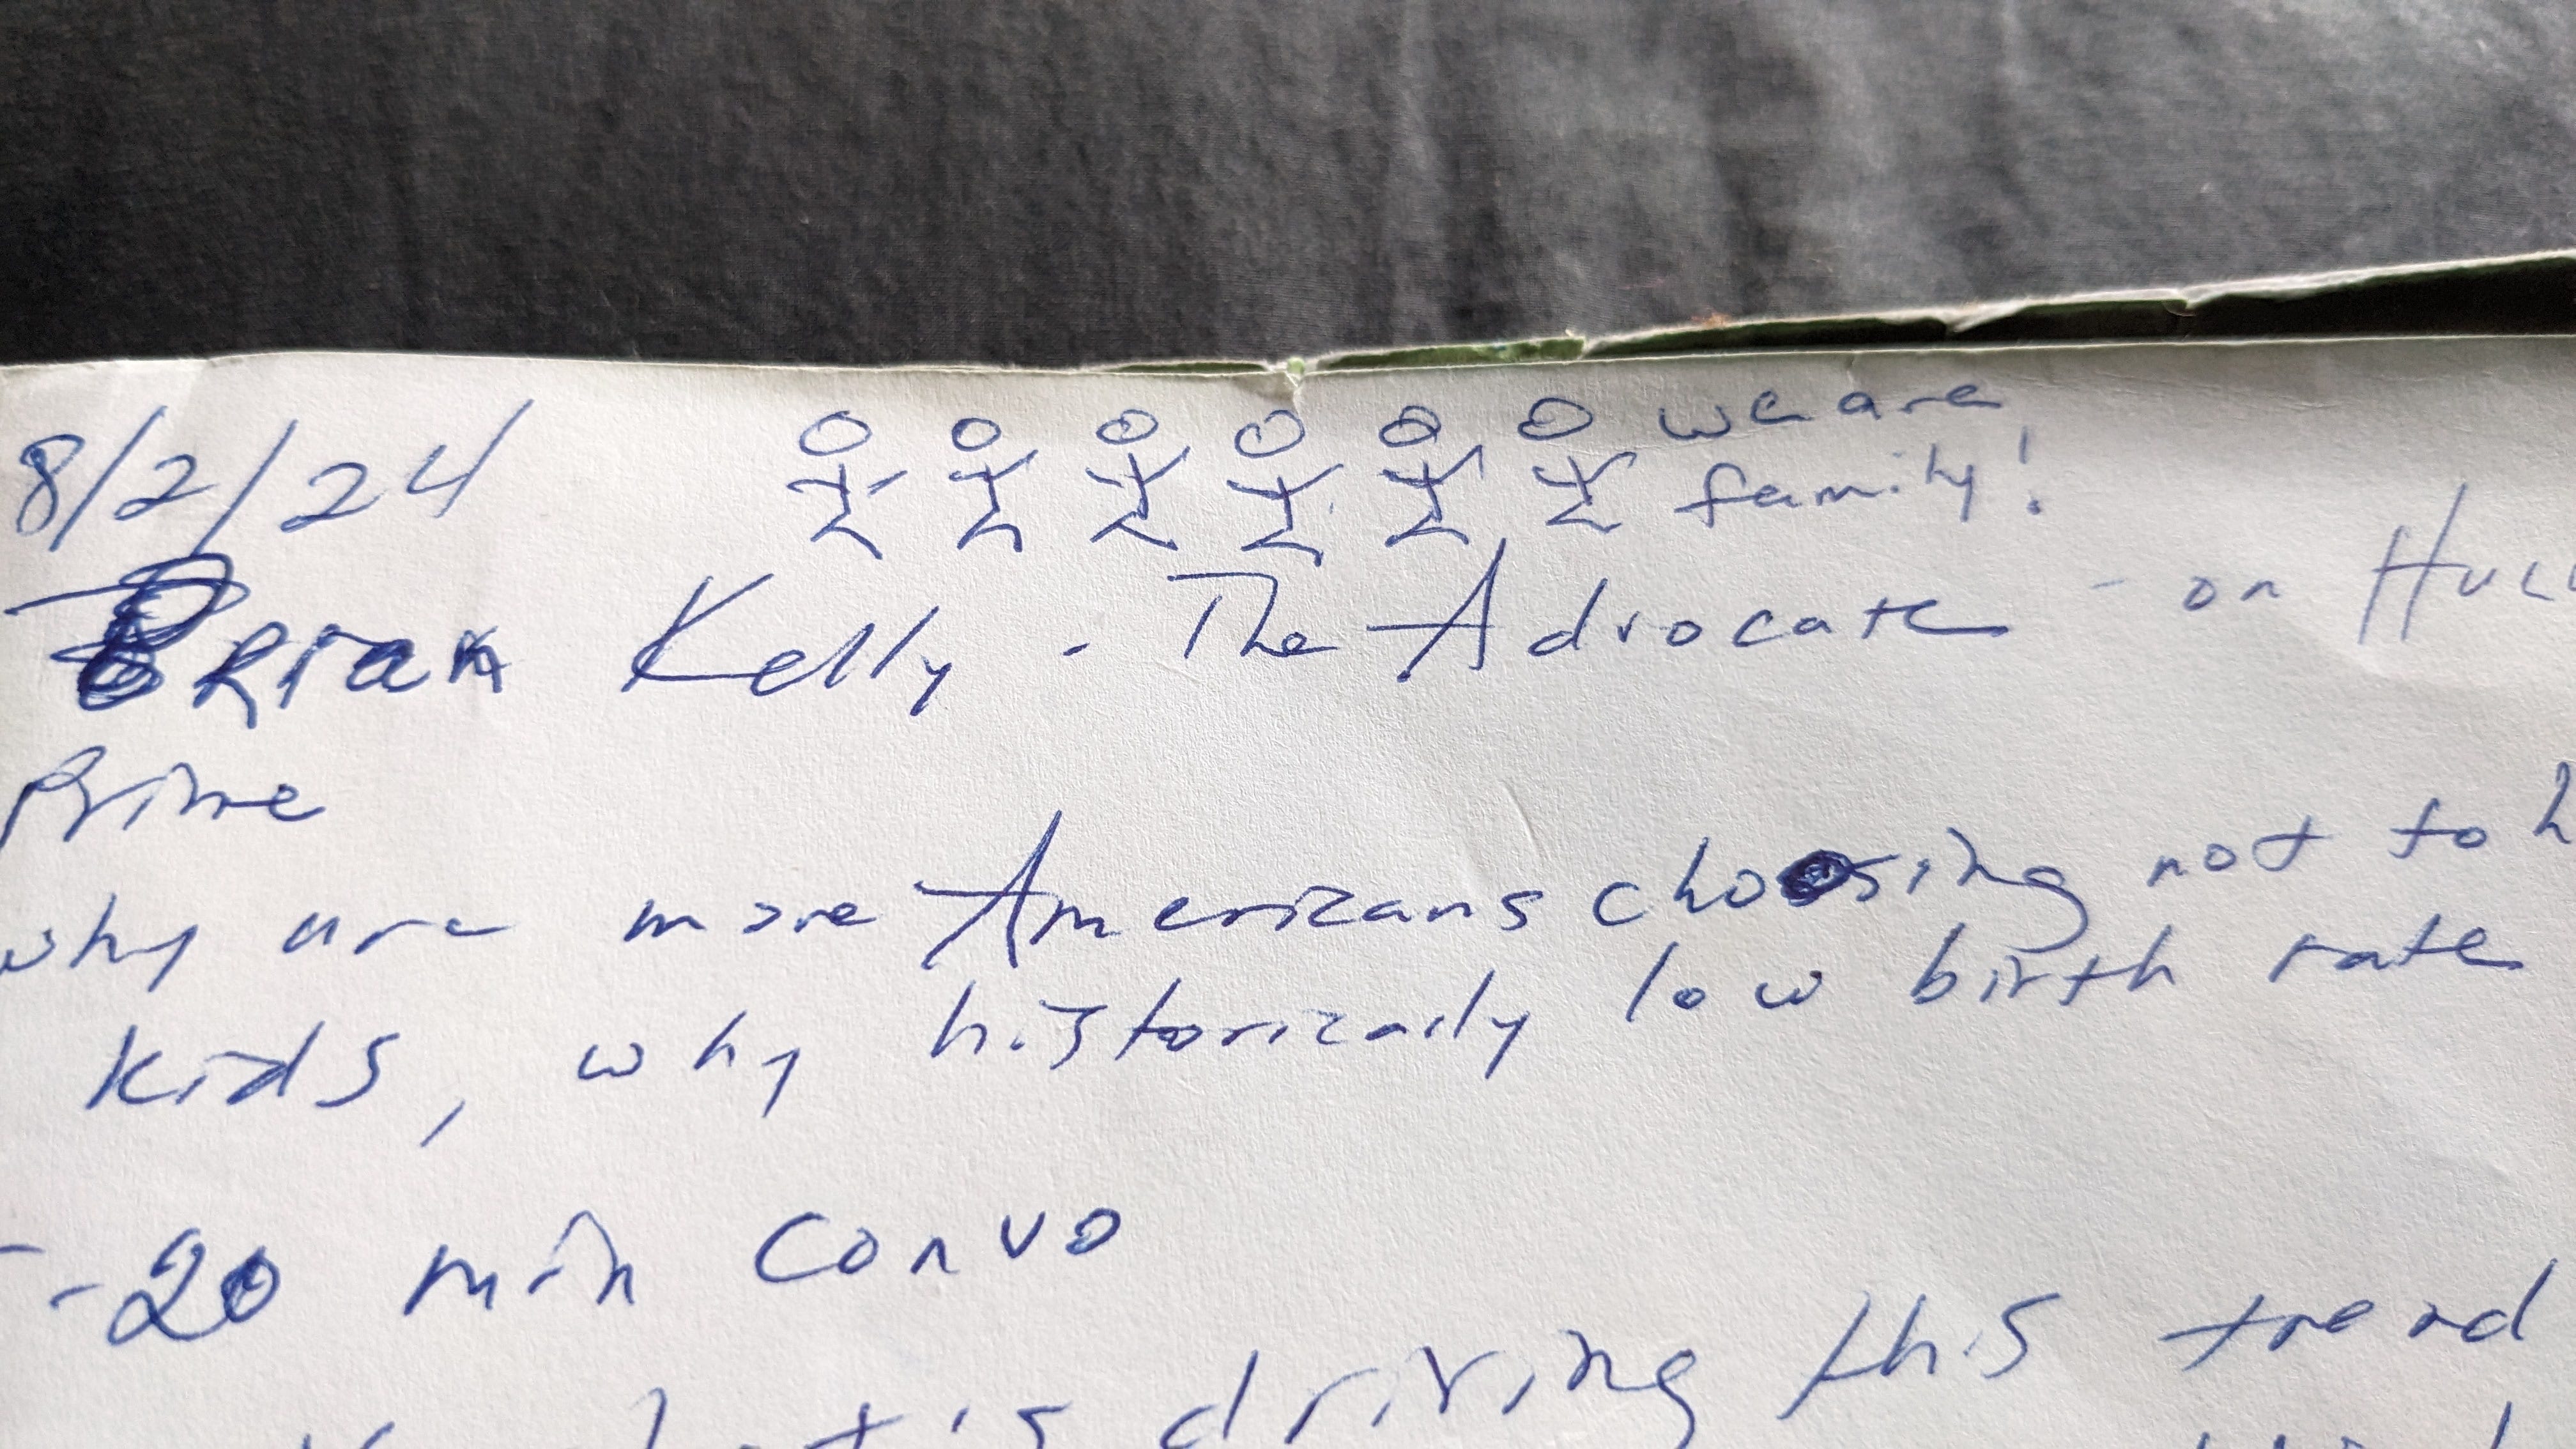 8/2/24 we are
family!
Brian Kelly - The Advocate - on
Prime
why are more Americans choosing not to
kids, why historically low birth rate
- -20 min convo
is driving this trend